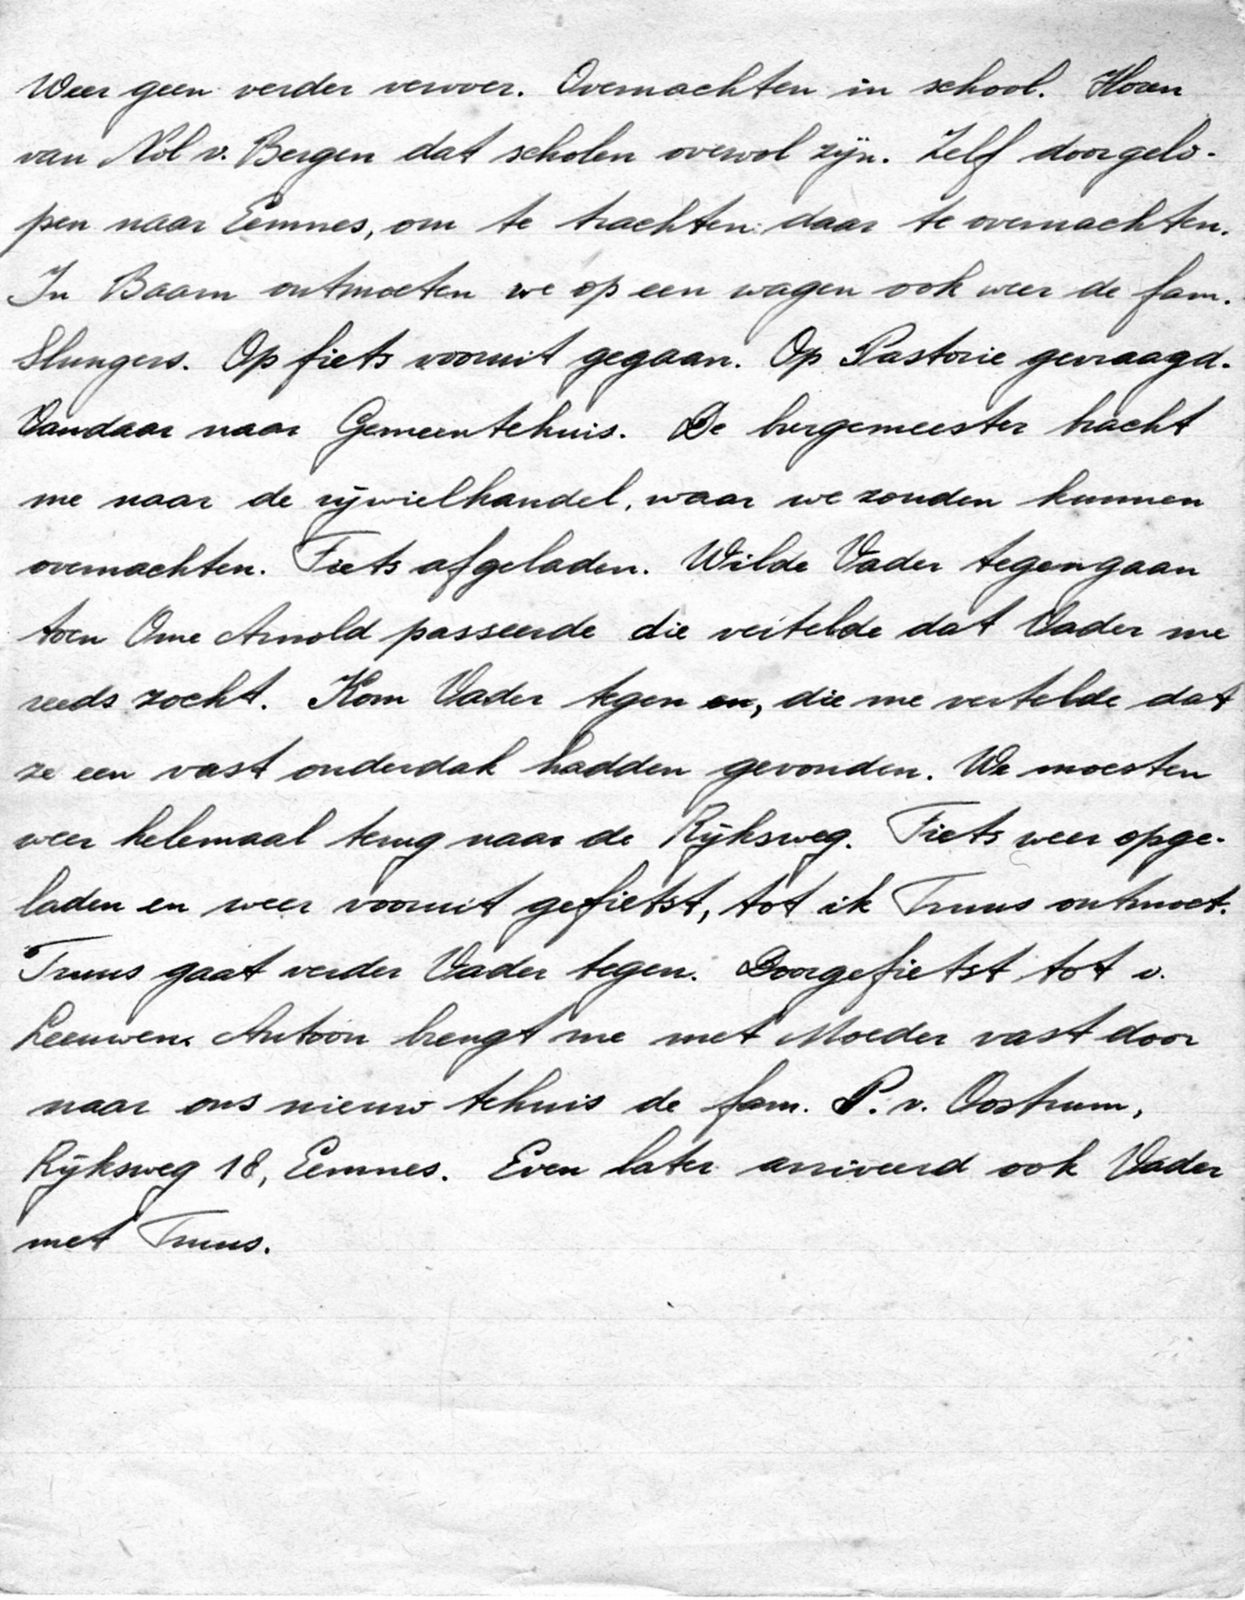 Weer geen verder vervoer. Overnachten in school. Horen
van Nol v. Bergen dat scholen overvol zijn. Zelf doorgelo-
pen naar Eemnes, om te trachten daar te overnachten.
In Baarn ontmoeten we op een wagen ook weer de fam.
Slungers. Op fiets vooruit gegaan. Op Pastorie gevraagd.
Vandaar naar Gemeentehuis. De burgemeester bracht
me naar de rijwielhandel, waar we zouden kunnen
overnachten. Fiets afgeladen. Wilde Vader tegengaan
toen Ome Arnold passeerde die vertelde dat Vader me
reeds zocht. Kom Vader tegen en, die me vertelde dat
ze een vast onderdak hadden gevonden. We moesten
weer helemaal terug naar de Rijksweg. Fiets weer opge-
laden en weer vooruit gefietst, tot ik Truus ontmoet.
Truus gaat verder Vader tegen. Doorgefietst tot v.
Leeuwen. Antoon brengt me met Moeder vast door
naar ons nieuw tehuis de fam. P. v. Oostrum,
Rijksweg 18, Eemnes. Even later arriveerd ook Vader
met Truus.